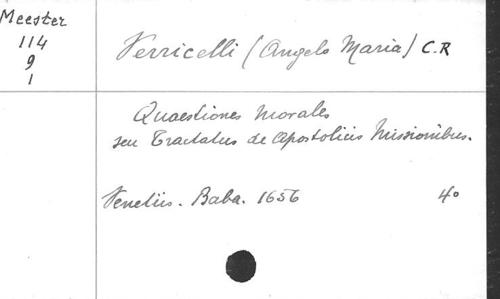 Meester
114
9
1
Verricelli (Angelo Maria) C.R
Quaestiones Morales
seu Tractatus de Apostolicis Missionibus.
Venetiis. Baba. 1656 4o